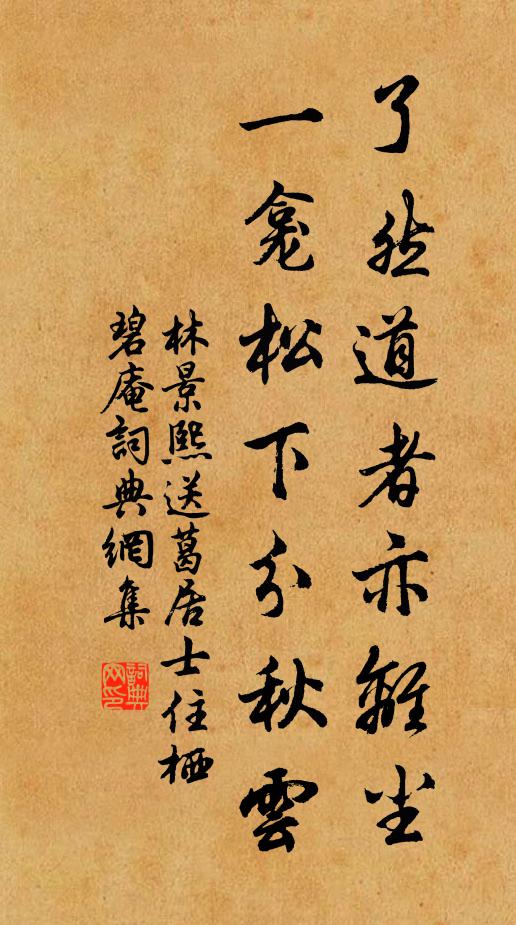 了然道者亦離尘
一龕松下分秋雲
林景熙送葛居士住栖
碧庵詞典網集
詞典網印